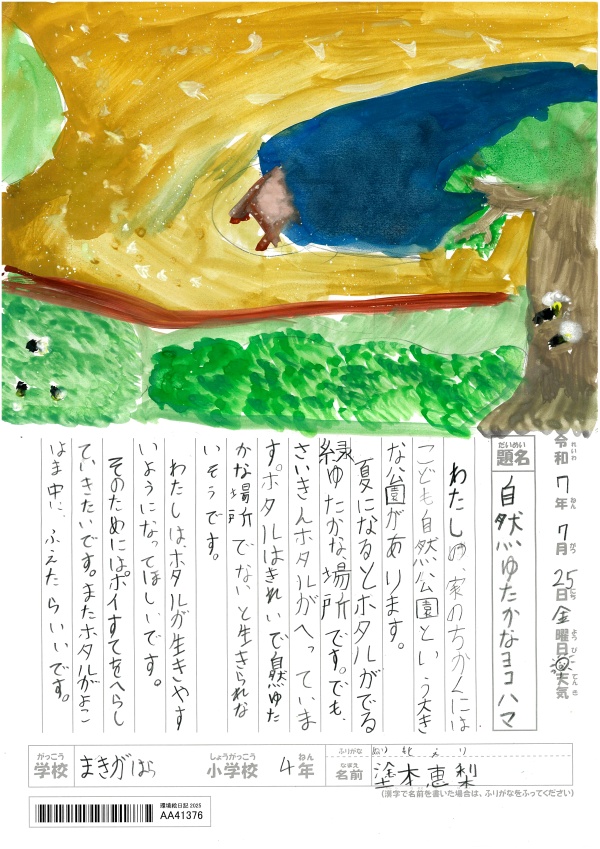 令和7年7月25日金曜日 天気
れいわ ねん がつ にち ようび てんき
だいめい
題名
自然ゆたかなヨコハマ
わたしの、家のちかくには、
こども自然公園という大き
な公園があります。
夏になるとホタルがでる
緑ゆたかな場所です。でも、
さいきんホタルがへっていま
す。ホタルはきれいで自然ゆた
かな場所でないと生きられな
いそうです。
わたしは、ホタルが生きやす
いようになってほしいです。
そのためにはポイすてをへらし
ていきたいです。またホタルがよこ
はま中に、ふえたらいいです。
がっこう
学校
まきがはら
しょうがっこう
小学校
4
ねん
年
ふりがな
なまえ
名前
塗木恵梨
(漢字で名前を書いた場合は、ふりがなをふってください)
環境絵日記 2025
AA41376